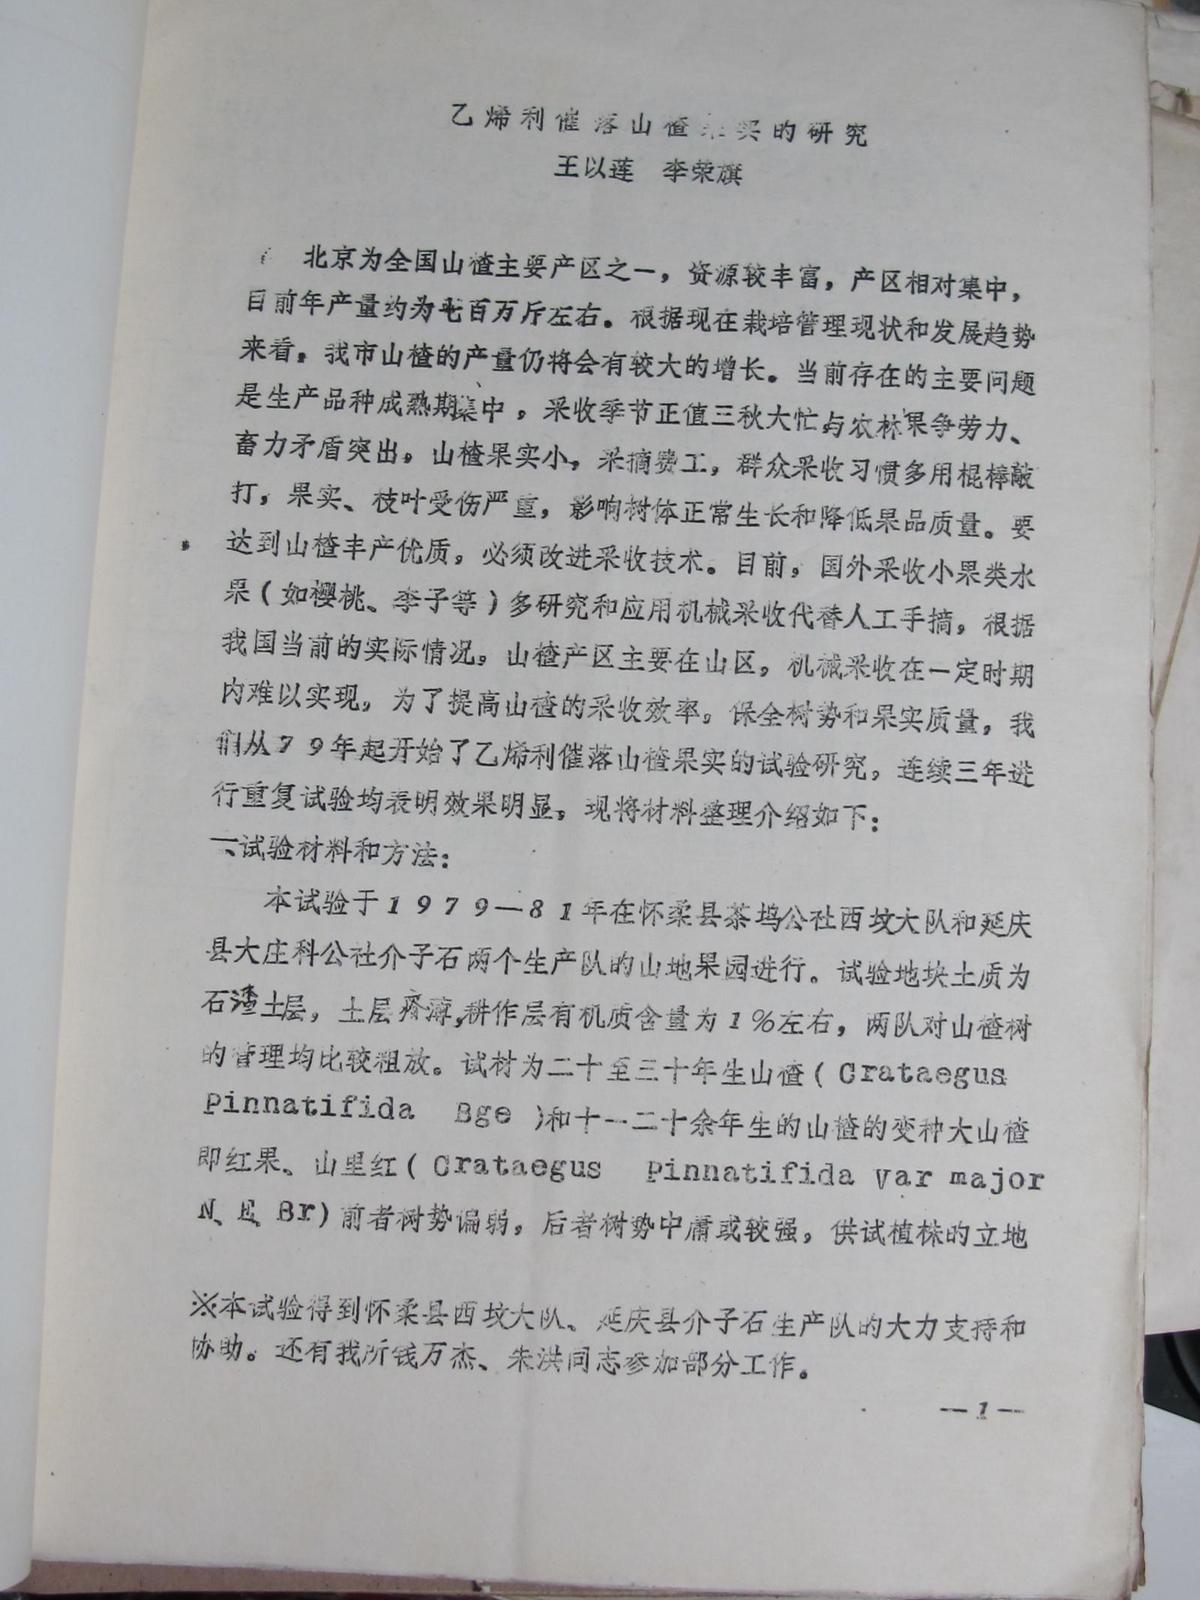 乙烯利催落山楂果实的研究
王以莲 李荣旗
北京为全国山楂主要产区之一，资源较丰富，产区相对集中，
目前年产量约为七百万斤左右。根据现在栽培管理现状和发展趋势
来看，我市山楂的产量仍将会有较大的增长。当前存在的主要问题
是生产品种成熟期集中，采收季节正值三秋大忙与农林果争劳力、
畜力矛盾突出，山楂果实小，采摘费工，群众采收习惯多用棍棒敲
打，果实、枝叶受伤严重，影响树体正常生长和降低果品质量。要
达到山楂丰产优质，必须改进采收技术。目前，国外采收小果类水
果（如樱桃、李子等）多研究和应用机械采收代替人工手摘，根据
我国当前的实际情况，山楂产区主要在山区，机械采收在一定时期
内难以实现，为了提高山楂的采收效率，保全树势和果实质量，我
们从79年起开始了乙烯利催落山楂果实的试验研究，连续三年进
行重复试验均表明效果明显，现将材料整理介绍如下：
一、试验材料和方法：
本试验于1979—81年在怀柔县茶坞公社西坟大队和延庆
县大庄科公社介子石两个生产队的山地果园进行。试验地块土质为
石渣土层，土层瘠薄，耕作层有机质含量为1%左右，两队对山楂树
的管理均比较粗放。试材为二十至三十年生山楂（Crataegus
Pinnatifida Bge）和十一二十余年生的山楂的变种大山楂
即红果、山里红（Crataegus Pinnatifida Var major
N、E、Br）前者树势偏弱，后者树势中庸或较强，供试植株的立地
※本试验得到怀柔县西坟大队、延庆县介子石生产队的大力支持和
协助。还有我所钱万杰、朱洪同志参加部分工作。
—1—